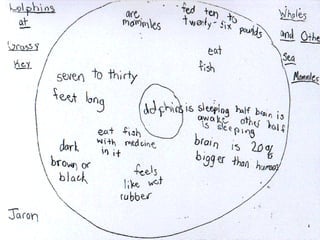 Dolphins
at
Grassy
Key
Wholes
and Other
sea
Mammles
are
mammles
fed ten to
twenty-six pounds
eat
fish
seven to thirty
feet long
dolphins
is sleeping half brain is
awake other half
is sleeping
brain is 20%
bigger than humans
eat fish
with medcine
in it
dark
brown or
black
feels
like wet
rubber
Jaron